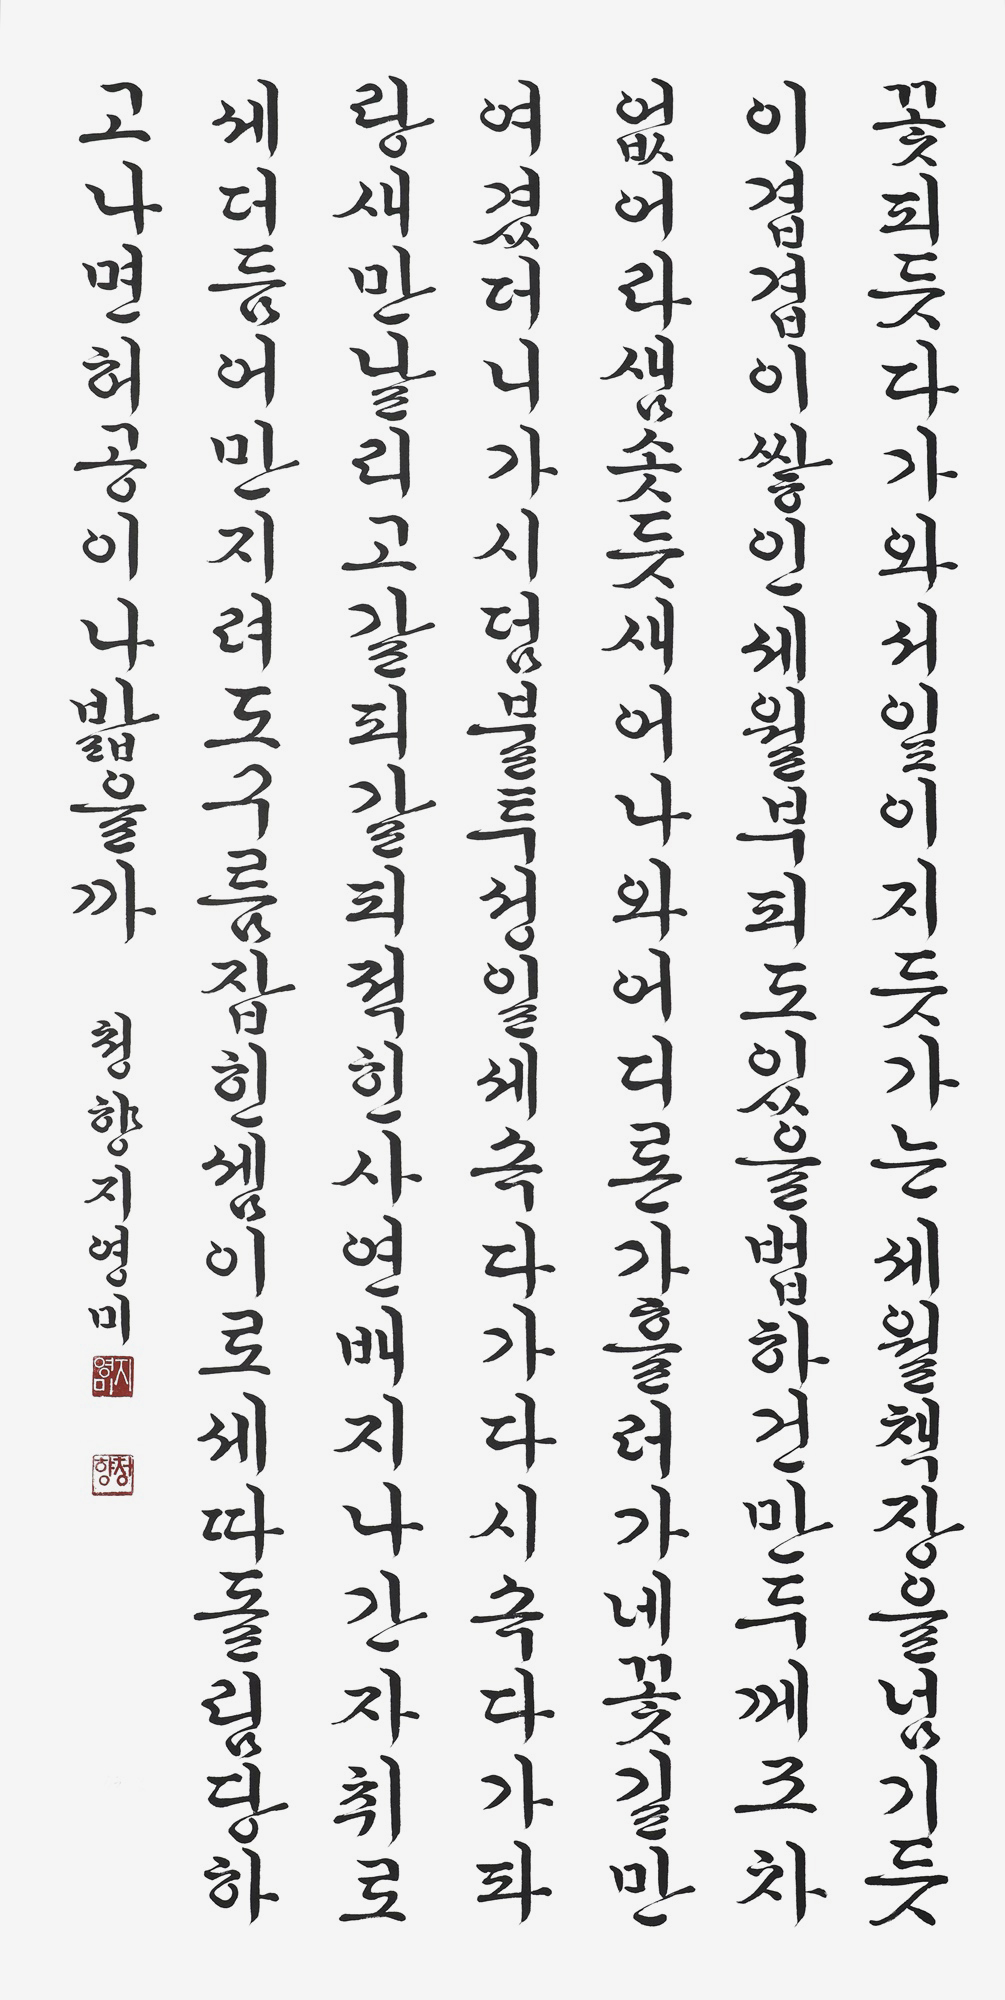 꽃피듯다가와서잎이지듯가는세월책장을넘기듯
이겹겹이쌓인세월부피도있을법하건만두께조차
없어라샘솟듯새어나와어디론가흘러가네꽃길만
여겼더니가시덤불투성일세속다가다시속다가파
랑새만날리고갈피갈피적힌사연배지나간자취로
세더듬어만지려도구름잡힌셈이로세따돌림당하
고나면허공이나밟을까
청향지영미
청향